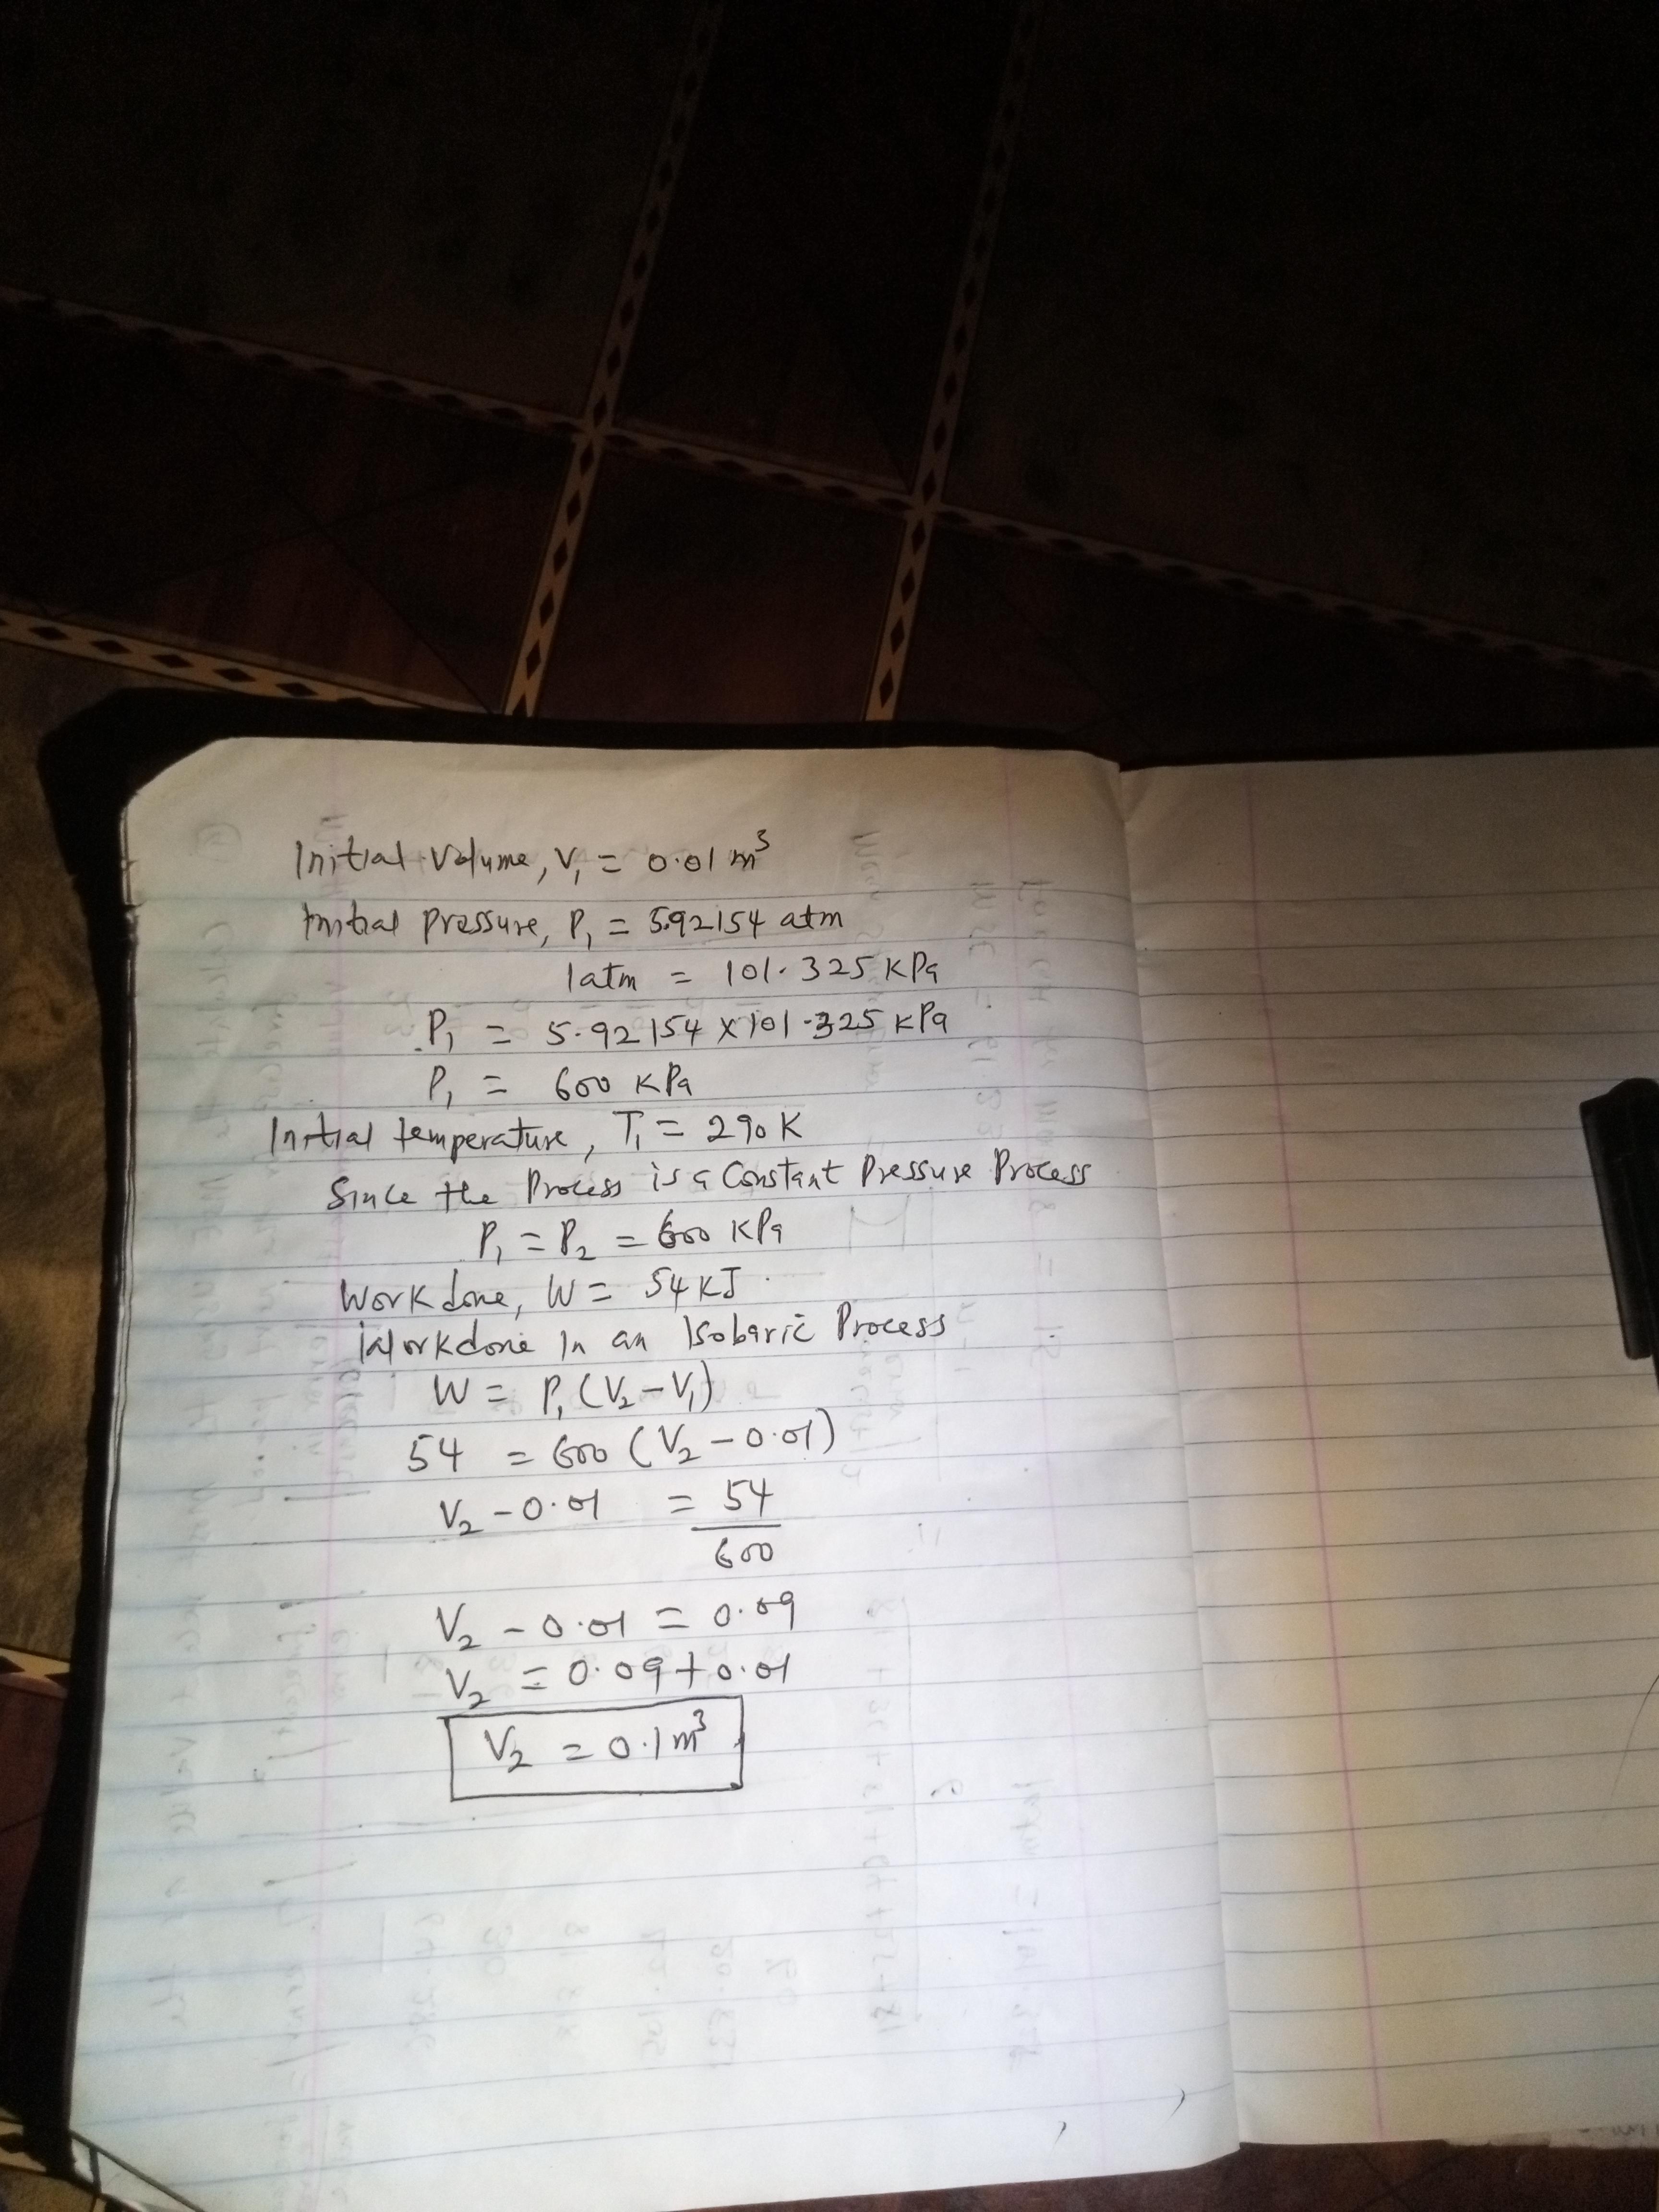 Initial Volume, V₁ = 0.01 m³
Initial Pressure, P₁ = 5.92154 atm
1atm = 101.325 KPa
P₁ = 5.92154 X 101.325 KPa
P₁ = 600 KPa
Initial temperature, T₁ = 290 K
Since the Process is a Constant Pressure Process
P₁ = P₂ = 600 KPa
Workdone, W = 54 KJ
Workdone In an Isobaric Process
W = P₁ (V₂ – V₁)
54 = 600 (V₂ – 0.01)
V₂ – 0.01 = 54
600
V₂ – 0.01 = 0.09
V₂ = 0.09 + 0.01
V₂ = 0.1 m³